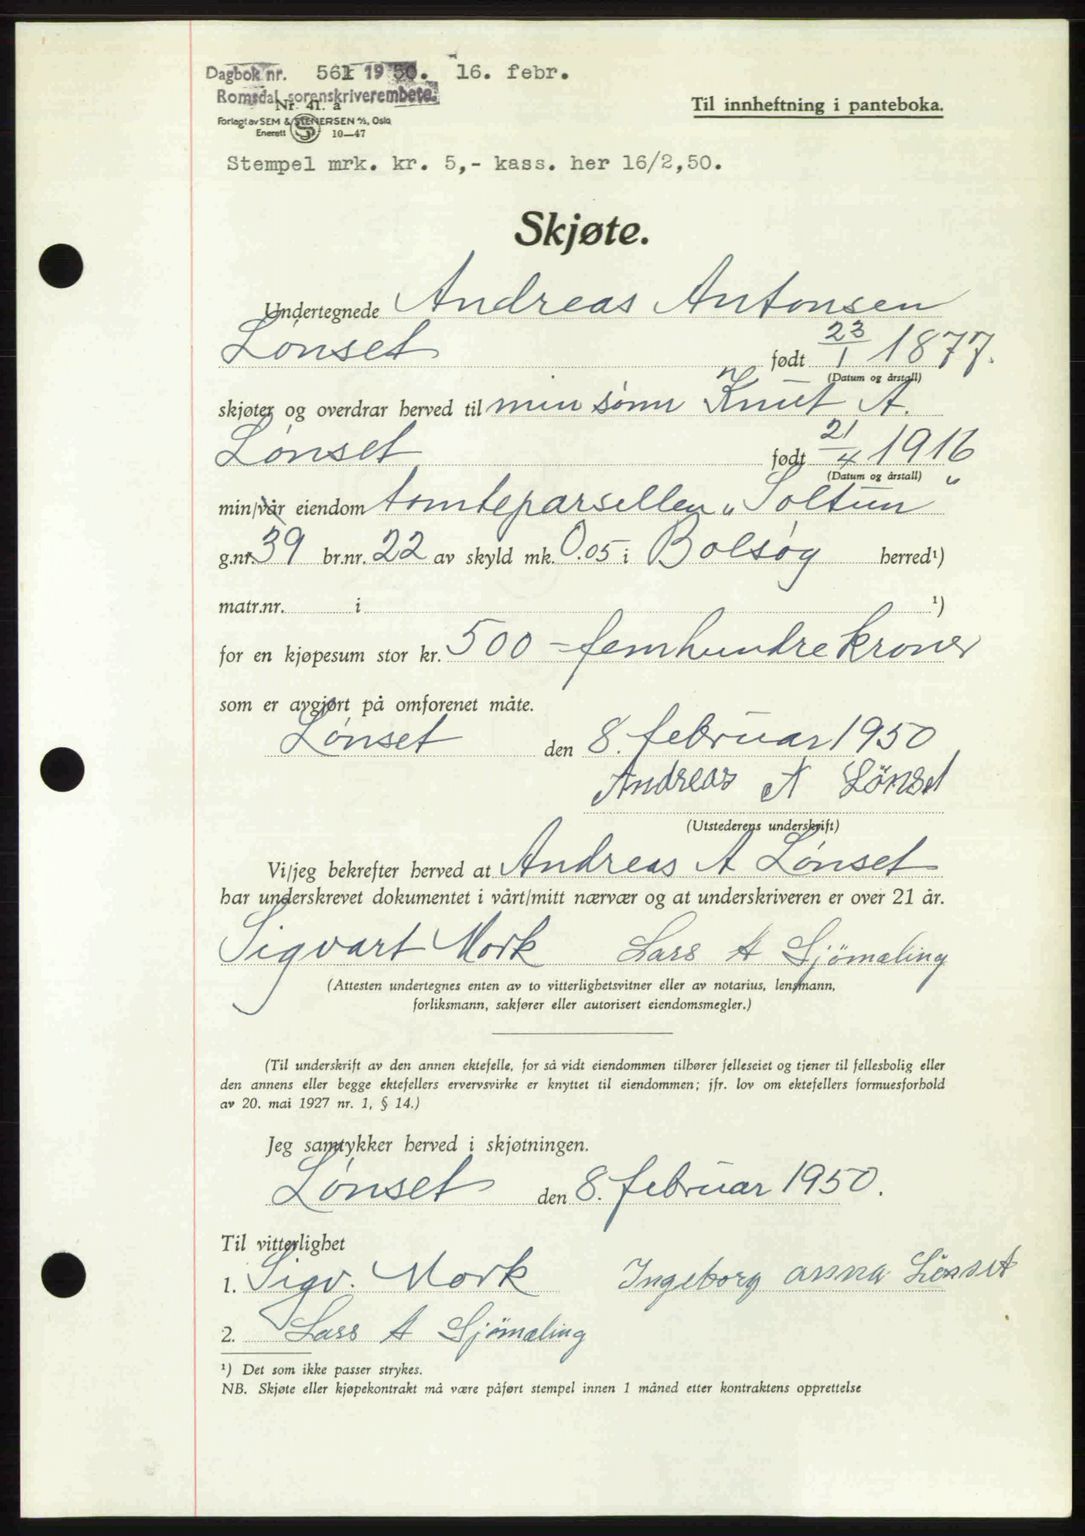 Dagbok nr. 561 1950. 16. febr.
Romsdal sorenskriverembete.
Nr. 41. a
Til innheftning i panteboka.
Forlagt av SEM & STENERSEN A/S, Oslo
Enerett S 10—47
Stempel mrk. kr. 5,- kass. her 16/2,50.
Skjøte.
Undertegnede Andreas Antonsen
Lønset født 23/1 1877.
(Datum og årstall)
skjøter og overdrar herved til min sønn Knut A.
Lønset født 21/4 1916
(Datum og årstall)
min/vår eiendom tomteparsellen „Soltun"
g.nr. 39 br.nr. 22 av skyld mk. 0.05 i Bolsøy herred¹)
matr.nr. i ¹)
for en kjøpesum stor kr. 500 = femhundrekroner
som er avgjort på omforenet måte.
Lønset den 8. februar 1950
Andreas A Lönset
(Utstederens underskrift)
Vi/jeg bekrefter herved at Andreas A Lønset
har underskrevet dokumentet i vårt/mitt nærvær og at underskriveren er over 21 år.
Sigvart Mork Lars A Sjömæling
(Attesten undertegnes enten av to vitterlighetsvitner eller av notarius, lensmann,
forliksmann, sakfører eller autorisert eiendomsmegler.)
(Til underskrift av den annen ektefelle, for så vidt eiendommen tilhører felleseiet og tjener til fellesbolig eller
den annens eller begge ektefellers ervervsvirke er knyttet til eiendommen; jfr. lov om ektefellers formuesforhold
av 20. mai 1927 nr. 1, § 14.)
Jeg samtykker herved i skjøtningen.
Lønset den 8. februar 1950.
Til vitterlighet
1. Sigv. Mork Ingeborg anna Lönset
2. Lars A Sjömæling
¹) Det som ikke passer strykes.
NB. Skjøte eller kjøpekontrakt må være påført stempel innen 1 måned etter kontraktens opprettelse